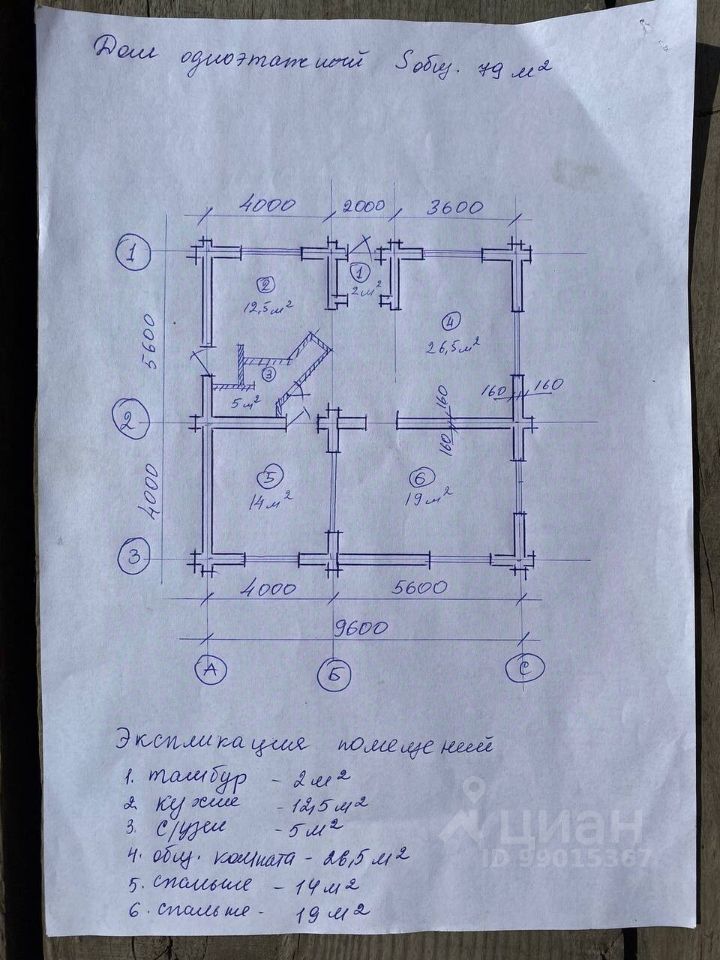 Дом одноэтажный Sобщ. 79 м²
4000 2000 3600
1
1
2 м²
2
12,5 м²
4
26,5 м²
5600
3
5 м²
160 160
160
160
2
5
14 м²
6
19 м²
4000
3
4000 5600
9600
А Б С
Экспликация помещений
1. тамбур - 2 м²
2. кухне - 12,5 м²
3. С/узел - 5 м²
4. общ. комната - 26,5 м²
5. спальне - 14 м²
6. спальне - 19 м²
циан
ID 99015367